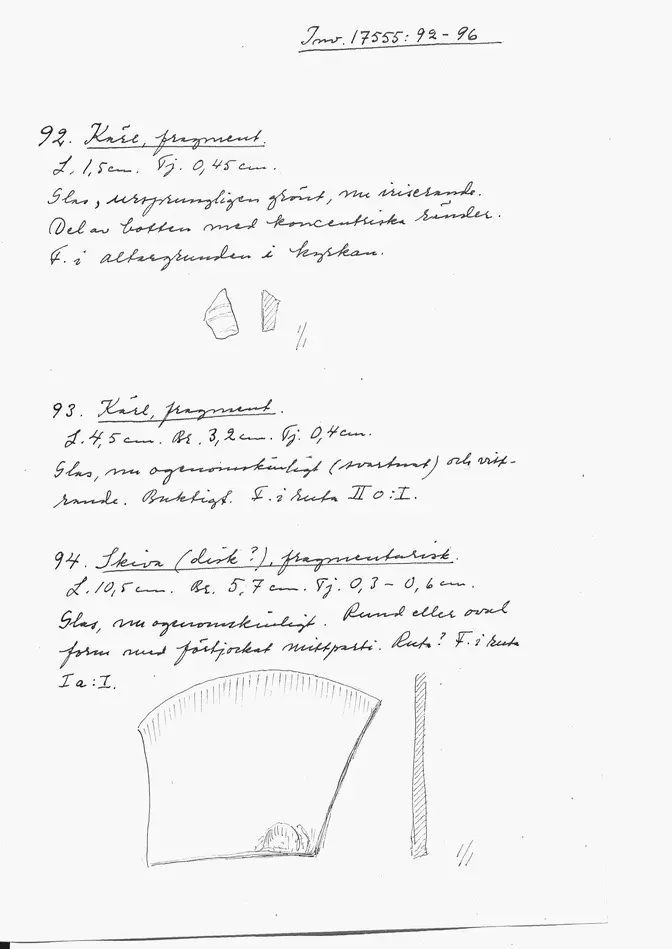 Inv. 17555: 92-96
92. Kärl, fragment.
L. 1,5 cm. Tj. 0,45 cm.
Glas, ursprungligen grönt, nu iriserande.
Del av botten med koncentriska ränder.
F. i altargrunden i kyrkan.
1/1
93. Kärl, fragment.
L. 4,5 cm. Br. 3,2 cm. Tj. 0,4 cm.
Glas, nu ogenomskinligt (svartnat) och vitt-
rande. Buktigt. F. i ruta II o:I.
94. Skiva (disk?), fragmentarisk.
L. 10,5 cm. Br. 5,7 cm. Tj. 0,3 - 0,6 cm.
Glas, nu ogenomskinligt. Rund eller oval
form med förtjockat mittparti. Ruta? F. i ruta
I a:I.
1/1